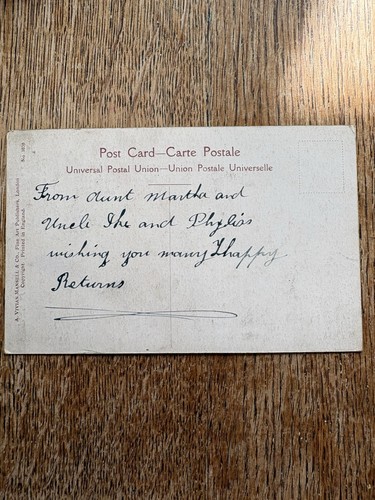 Post Card—Carte Postale
Universal Postal Union—Union Postale Universelle
From Aunt Martha and
Uncle Ike and Phyliss
wishing you many Happy
Returns
A. VIVIAN MANSELL & CO., Fine Art Publishers, London
Copyright—Printed in England.
No.